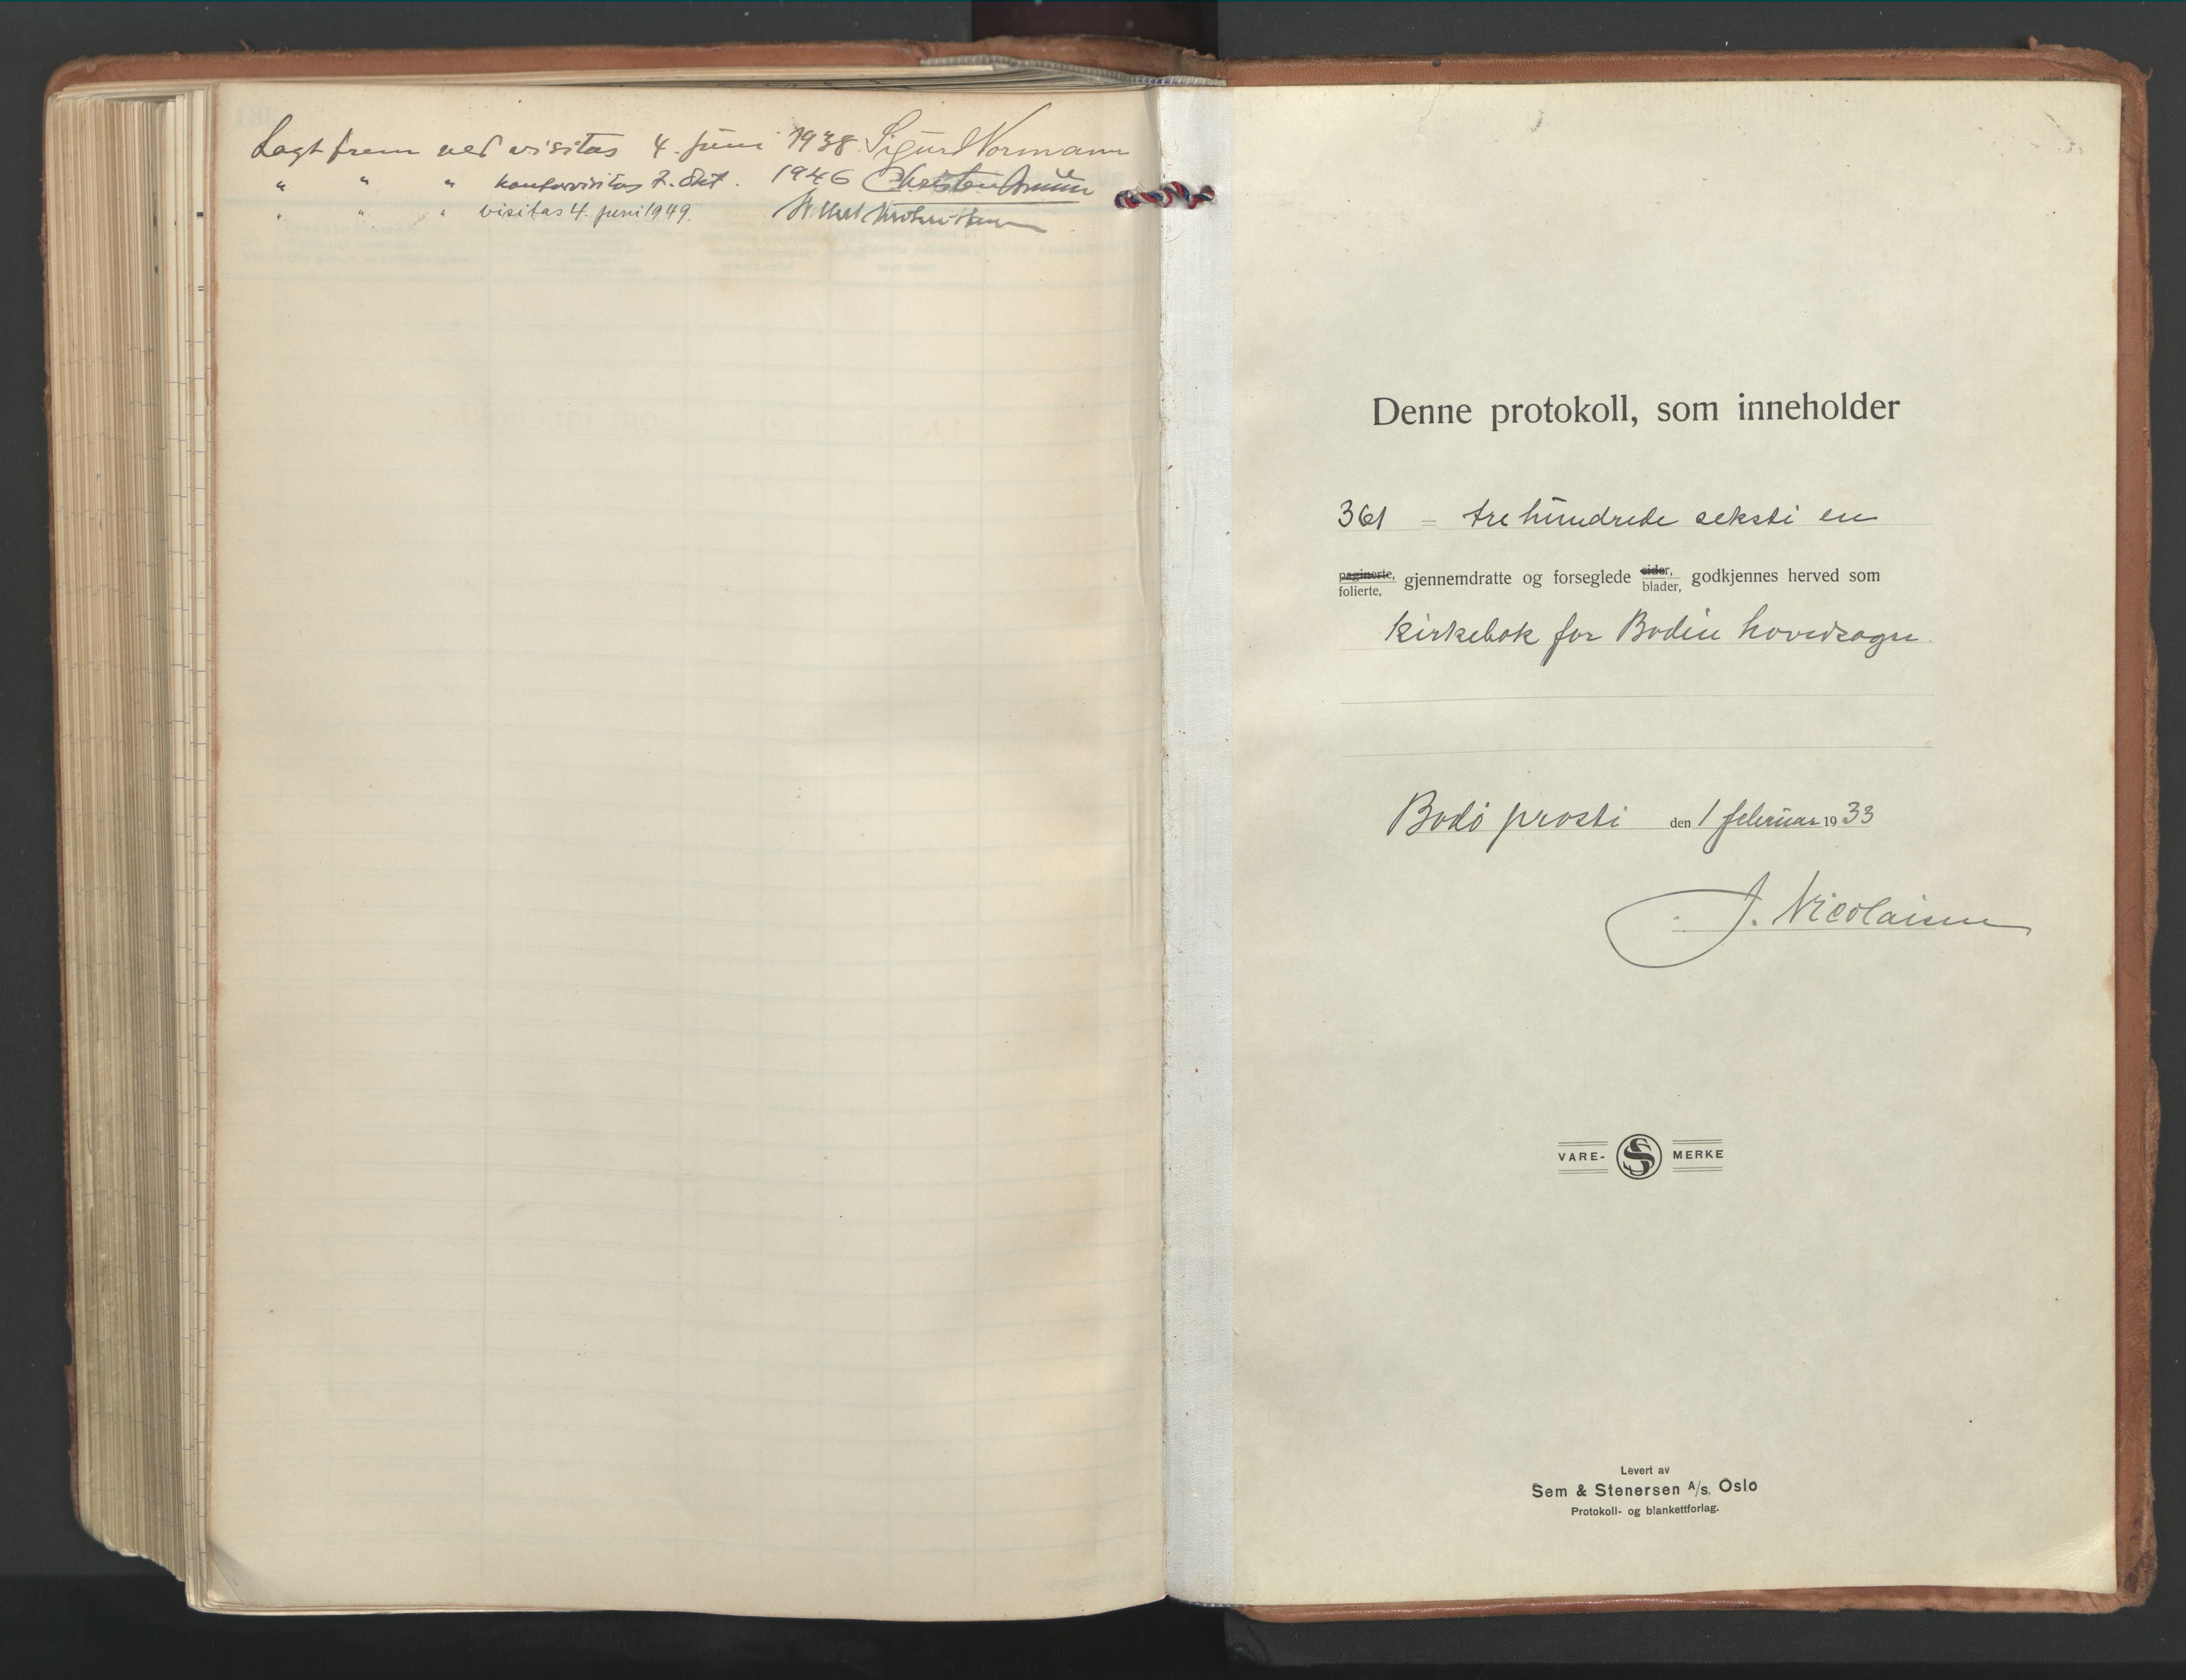 Lagt frem ved visitas 4. juni 1938 Sigurd Normann
" " " kontorvisitas 7. okt. 1946
" " " visitas 4. juni 1949.
Denne protokoll, som inneholder
361 = tre hundrede seksti en
paginerte, folierte, gjennemdratte og forseglede sider, blader, godkjennes herved som
kirkebok for Bodin hovedsogn
Bodø prosti den 1 februar 1933
J. Nicolaisen
VARE- S MERKE
Levert av
Sem & Stenersen A/s, Oslo
Protokoll- og blankettforlag.